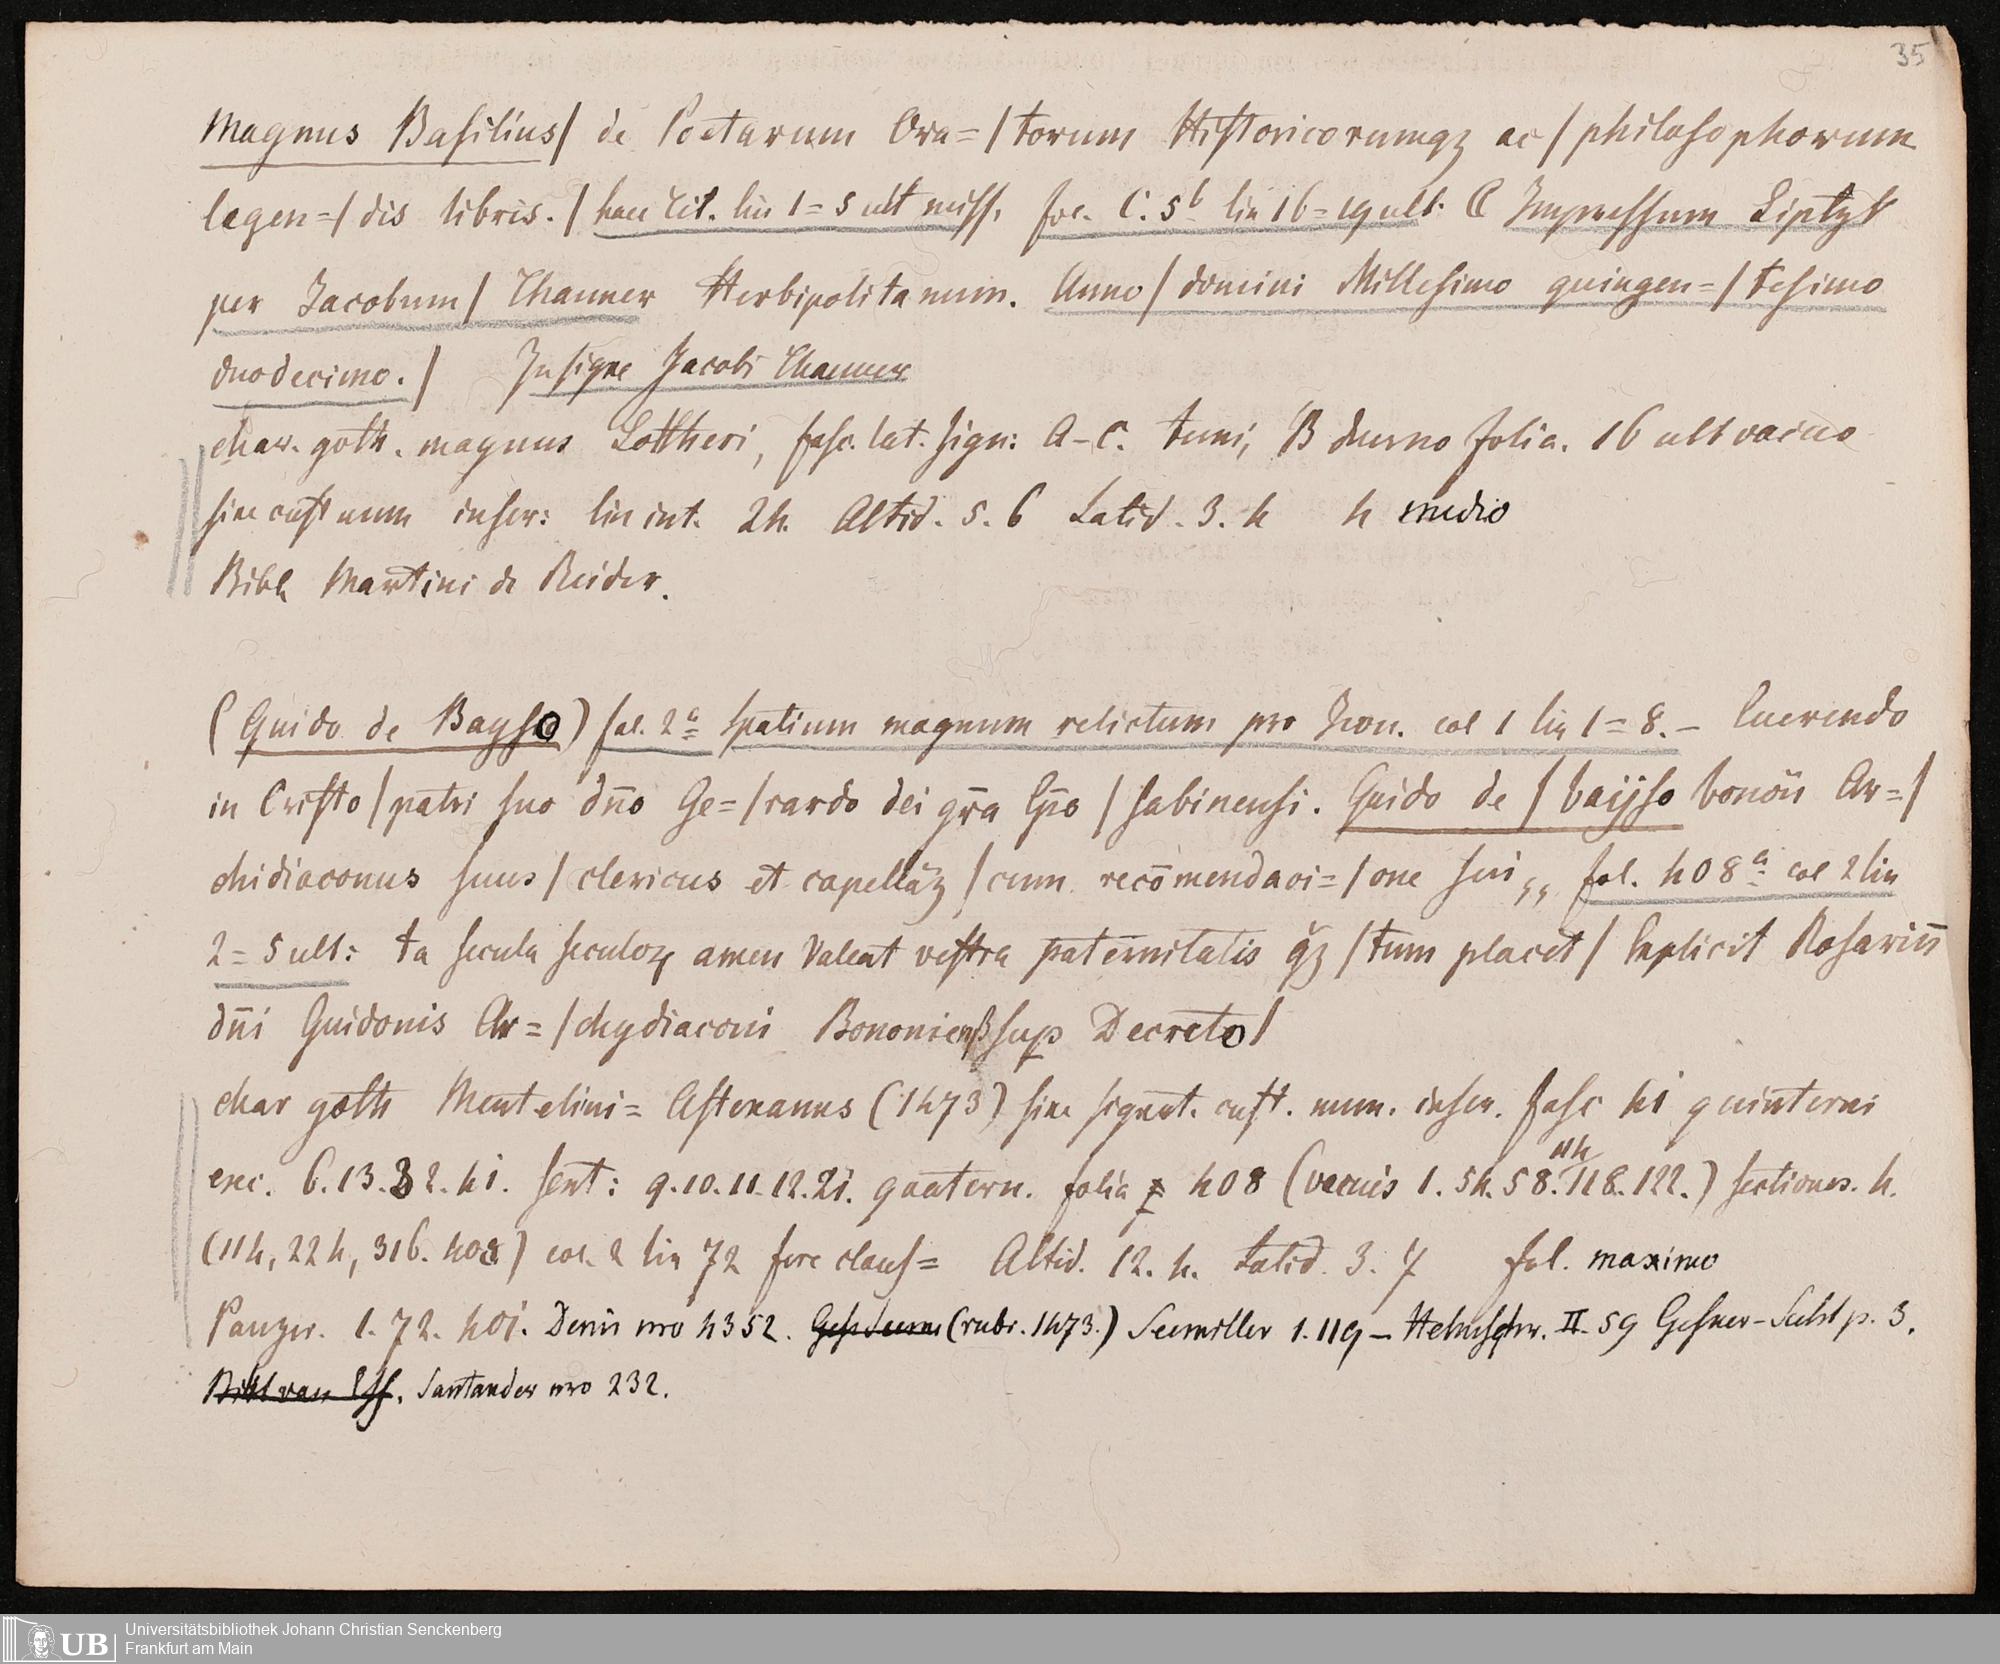 35
Magnus Basilius/ de Poetarum Ora=/torum Historicorumqz ac/philosophorum
legen=/dis libris./ haec tit. lin 1=5 ult miss. foe. C. 5b lin 16=19 ult: C Impressum Liptzk
per Jacobum/ Thanner Herbipolitanum. Anno/domini Millesimo quingen=/tesimo
duodecimo./ Insigne Jacobi Thanner
char. goth. magnus Lottheri, fasc. lat. sign: A-C. terni, B duerno folia. 16 ult vacuo
sine cust num inscr: lin int. 24. Altid. 5. 6 Latid. 3. 4 4 medio
Bibl Martini de Reider.
(Guido de Bayso) fol. 2a spatium magnum relictum pro Icon. col 1 lin 1=8.-
in Cristo/patri suo dn̄o Ge=/rardo dei gr̄a Ep̄o /sabinensi. Guido de /baijso bonon̄ Ar=/
chidiaconus suus/clericus et capellāz/cum recōmendaci=/one sui,, fol. 408a col 2 lin
2=5 ult: ta secula seculoꝝ amen Valeat vestra paternitatis qz/tum placet/ Explicit Rosariū
dn̄i Guidonis Ar=/chydiaconi Bononienß sup Decreto/
char goth Mentelini= Astexanus (1473) sine signat. cust. num. inscr. fasc 41 quinterni
exc. 6.13.32.41. sext: 9.10.11.12.21. quatern. folia 408 (vacuis 1.54.58. 114 118.122.) sectiones. 4.
(114, 224, 316. 408) col. 2 lin 72 fere claus= Altid. 12. 4. Latid. 3. 7 fol. maximo
Panzer. 1. 72. 401. Denis nro 4352. (rubr. 1473.) Seemiller 1.119- Helmschr. II. 59 Gesner-Suhl p. 3.
Bibl van Ess. Santander nro 232.
UB
Universitätsbibliothek Johann Christian Senckenberg
Frankfurt am Main